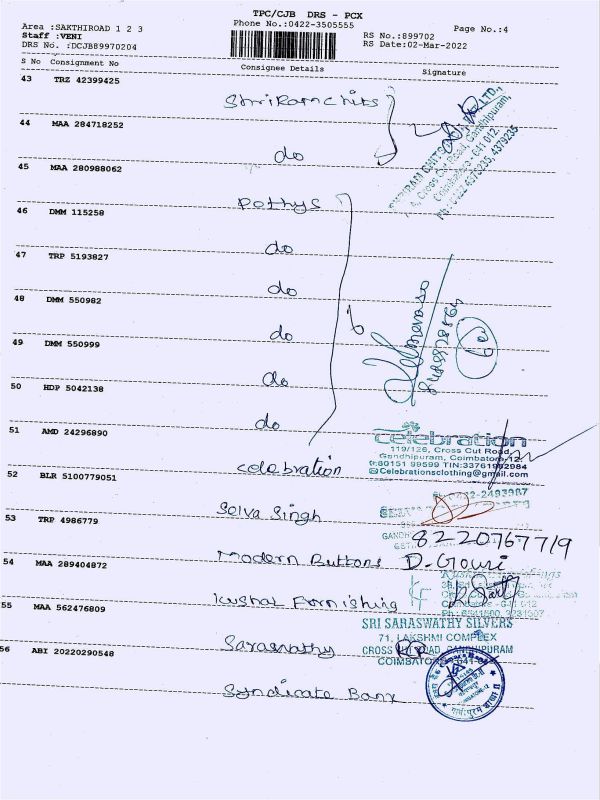 TPC/CJB DRS - PCX
Phone No.:0422-3505555
Page No.:4
Area :SAKTHIROAD 1 2 3
Staff :VENI
DRS No. :DCJB89970204
RS No.:899702
RS Date:02-Mar-2022
S No Consignment No Consignee Details Signature
43 TRZ 42399425
ShriRamchits
44 MAA 284718252
do
45 MAA 280988062
Pothys
46 DMM 115258
do
47 TRP 5193827
do
48 DMM 550982
do
49 DMM 550999
do
50 HDP 5042138
do
51 AMD 24296890
celebration
52 BLR 5100779051
Selva Singh
53 TRP 4986779
Modern Buttons
54 MAA 289404872
Kushal Furnishing
55 MAA 562476809
Saraswathy
56 ABI 20220290548
Syndicate Bank
SHRIRAM CHITS LTD.,
Cross Cut Road, Gandhipuram,
Coimbatore-641 012.
Ph : 0422 4376235, 4379235
6
celebration
119/126, Cross Cut Road,
Gandhipuram, Coimbatore-12.
t:80151 99599 TIN:33761992984
Celebrationsclothing@gmail.com
2493987
8220767719
D-Gouri
SRI SARASWATHY SILVERS
71, LAKSHMI COMPLEX
CROSS CUT ROAD, GANDHIPURAM
COIMBATORE-641